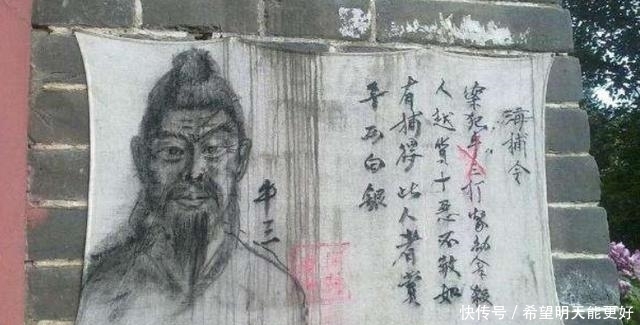 海捕令
案犯牛三打家劫舍殺
人越货十恶不赦如
有捕得此人者赏
千两白銀
牛三
快传号/希望明天能更好